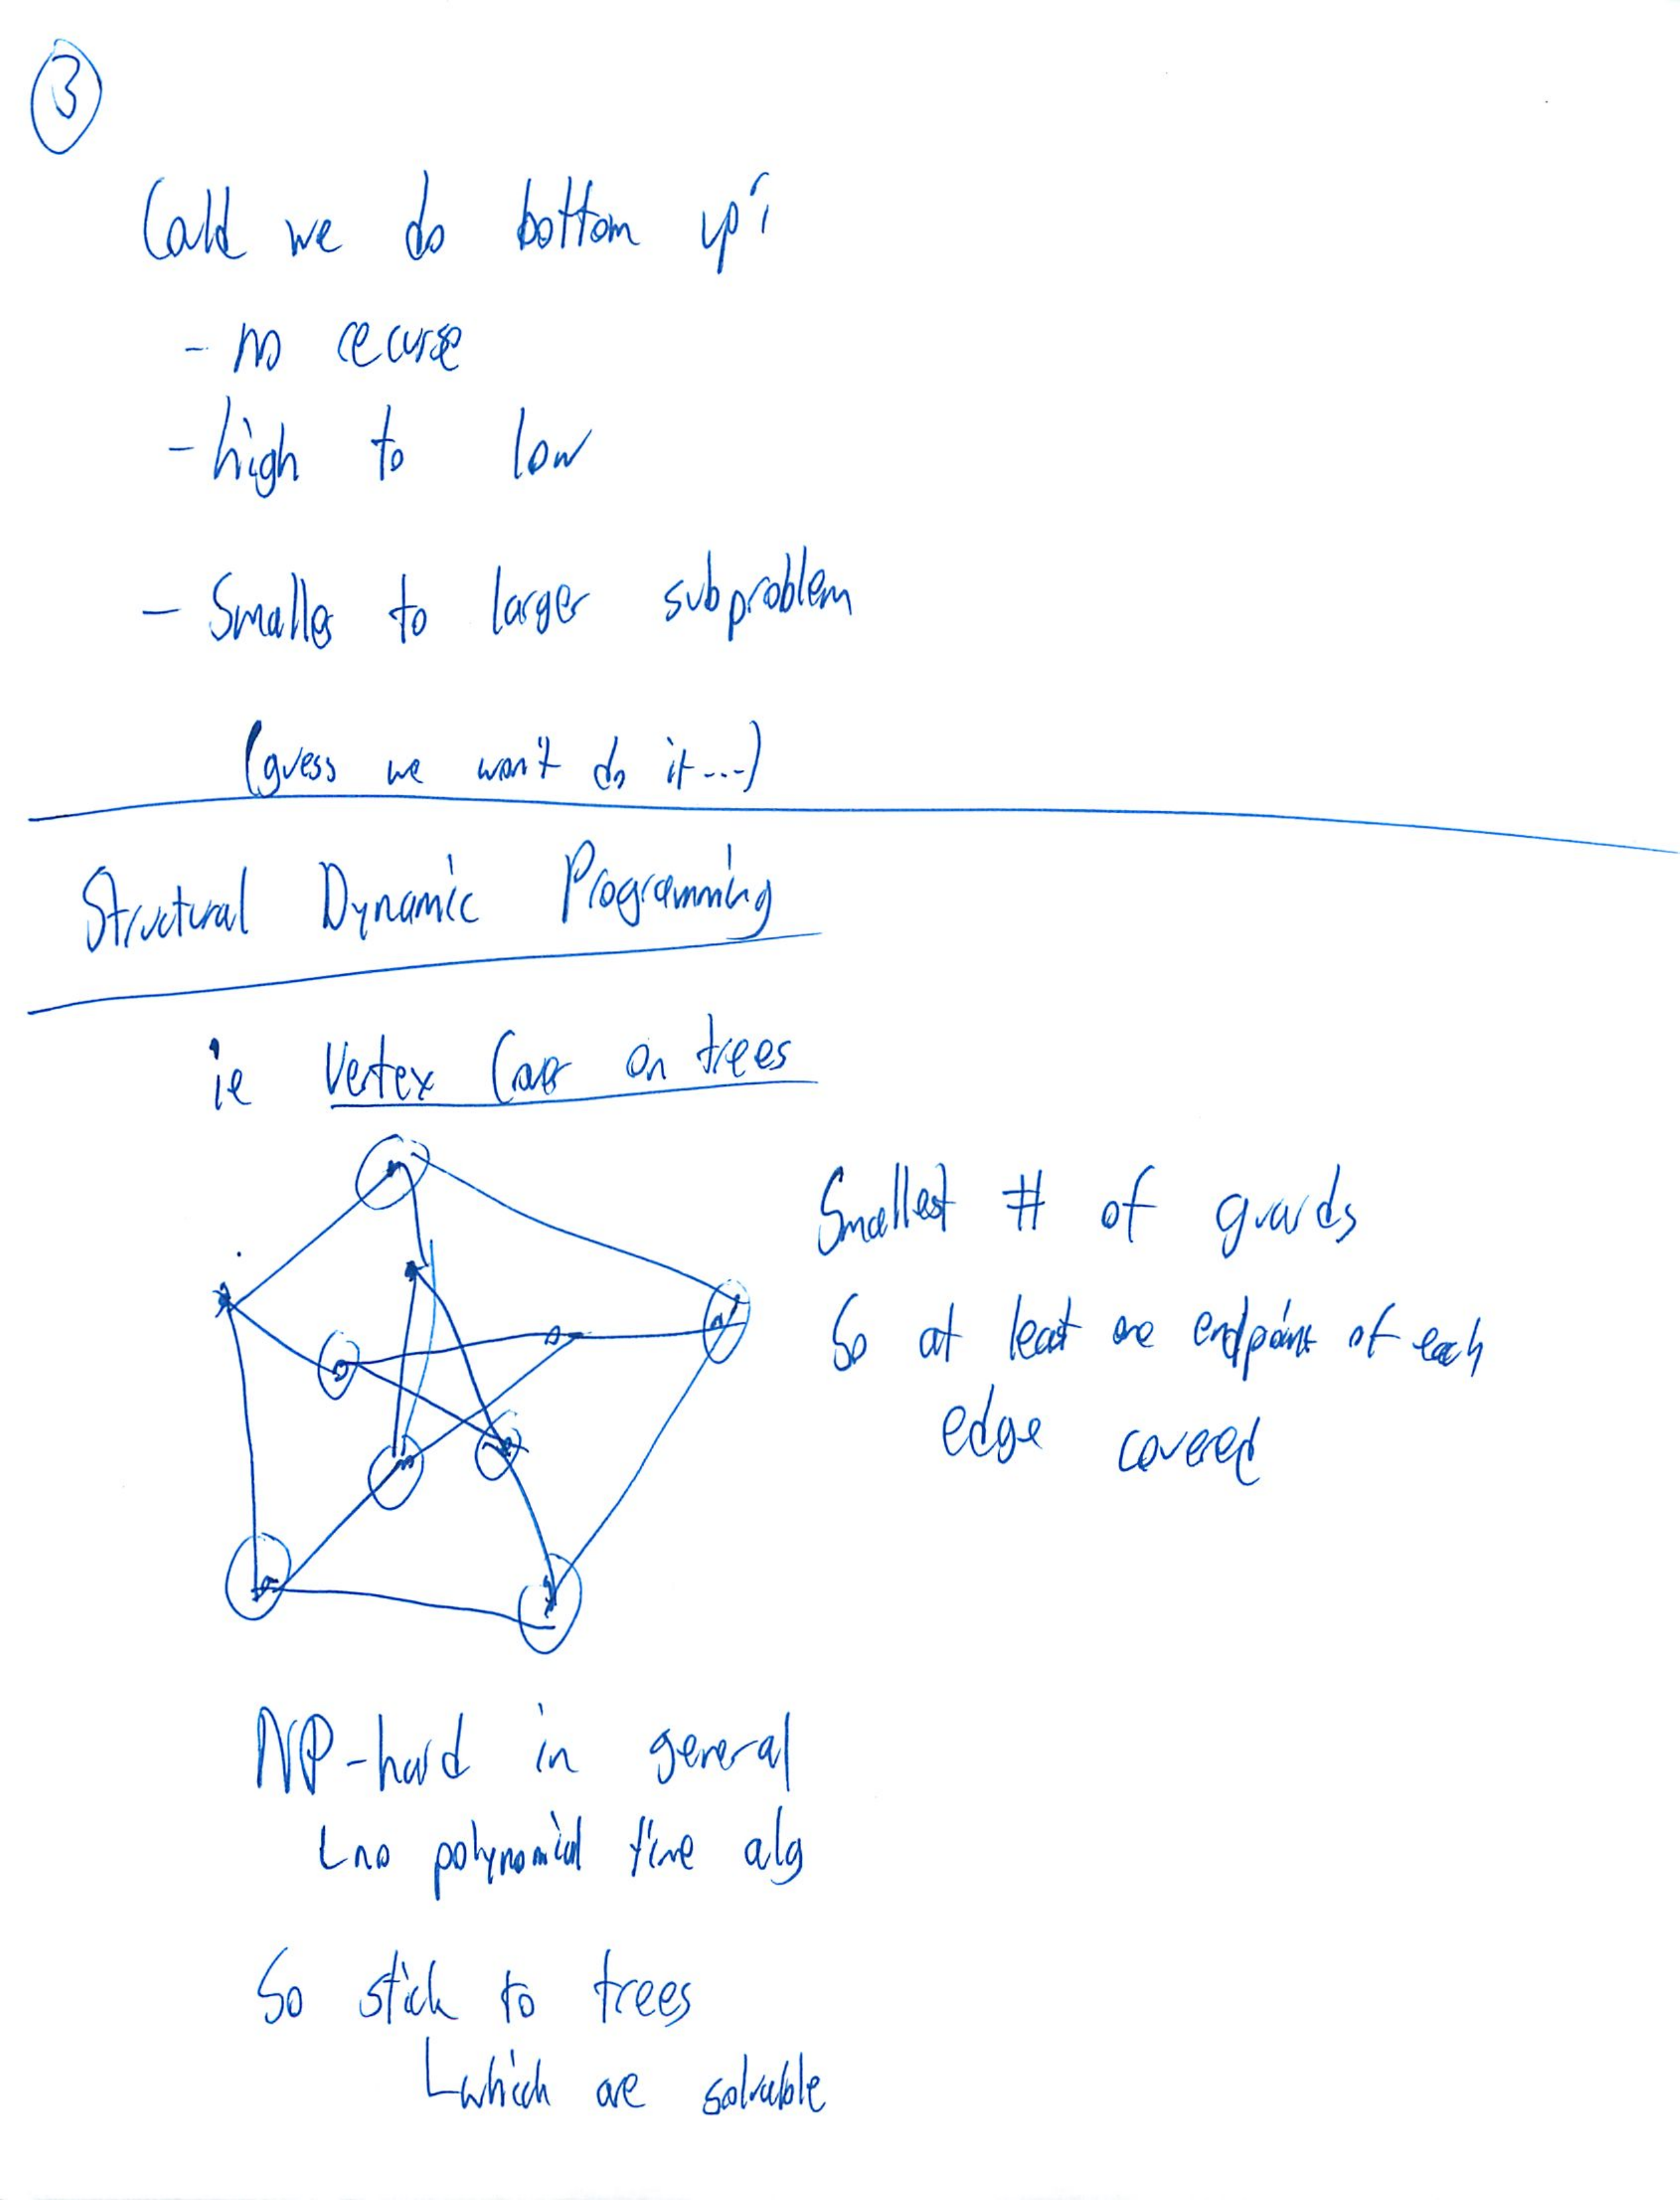 3
Could we do bottom up?
- no recurse
- high to low
- Smaller to larger subproblem
(guess we won't do it...)
Structural Dynamic Programming
ie Vertex Cover on trees
Smallest # of guards
So at least one endpoint of each
edge covered
NP-hard in general
no polynomial time alg
So stick to trees
which are solvable